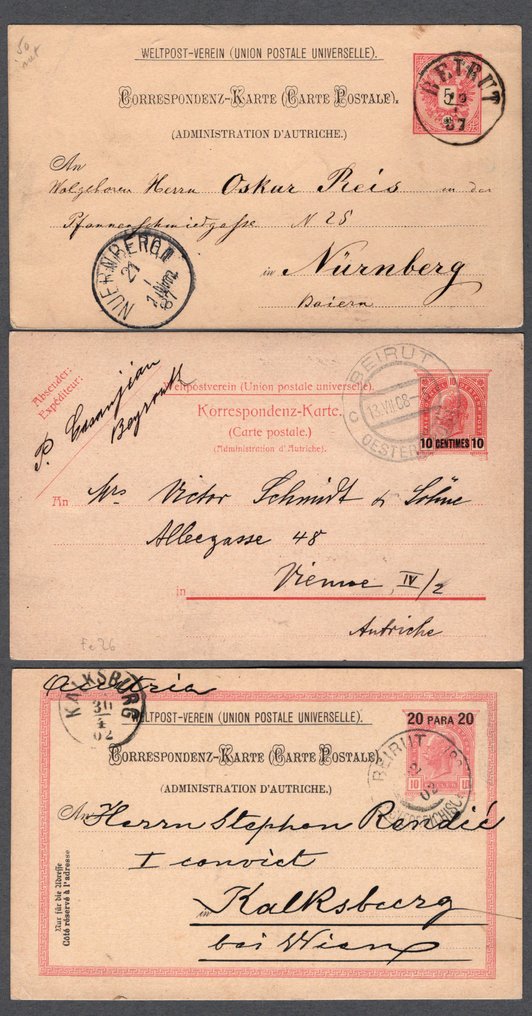 50
WELTPOST-VEREIN (UNION POSTALE UNIVERSELLE).
CORRESPONDENZ-KARTE (CARTE POSTALE).
(ADMINISTRATION D'AUTRICHE.)
BEIRUT
87
An
Wolgeboren Herrn Oskar Reis in der
Pfannenschmiedgasse N 25
in Nürnberg
Baiern
NUERNBERG II
21
1
87
Absender:
Expéditeur:
Beyrouth
Weltpostverein (Union postale universelle).
Korrespondenz-Karte.
(Carte postale.)
(Administration d'Autriche.)
BEIRUT
13 VII 08
10 CENTIMES 10
An Mrs Victor Schmidt & Söhne
Alleegasse 48
in Vienne, IV/2
Autriche
Fe 26
Austria
KALKSBURG
02
WELTPOST-VEREIN (UNION POSTALE UNIVERSELLE).
20 PARA 20
CORRESPONDENZ-KARTE (CARTE POSTALE)
(ADMINISTRATION D'AUTRICHE.)
BEIRUT
02
10 HELLER 10
An Herrn Stephan Rendić
I convict
in Kalksburg
bei Wien
Nur für die Adresse
Côté réservé à l'adresse